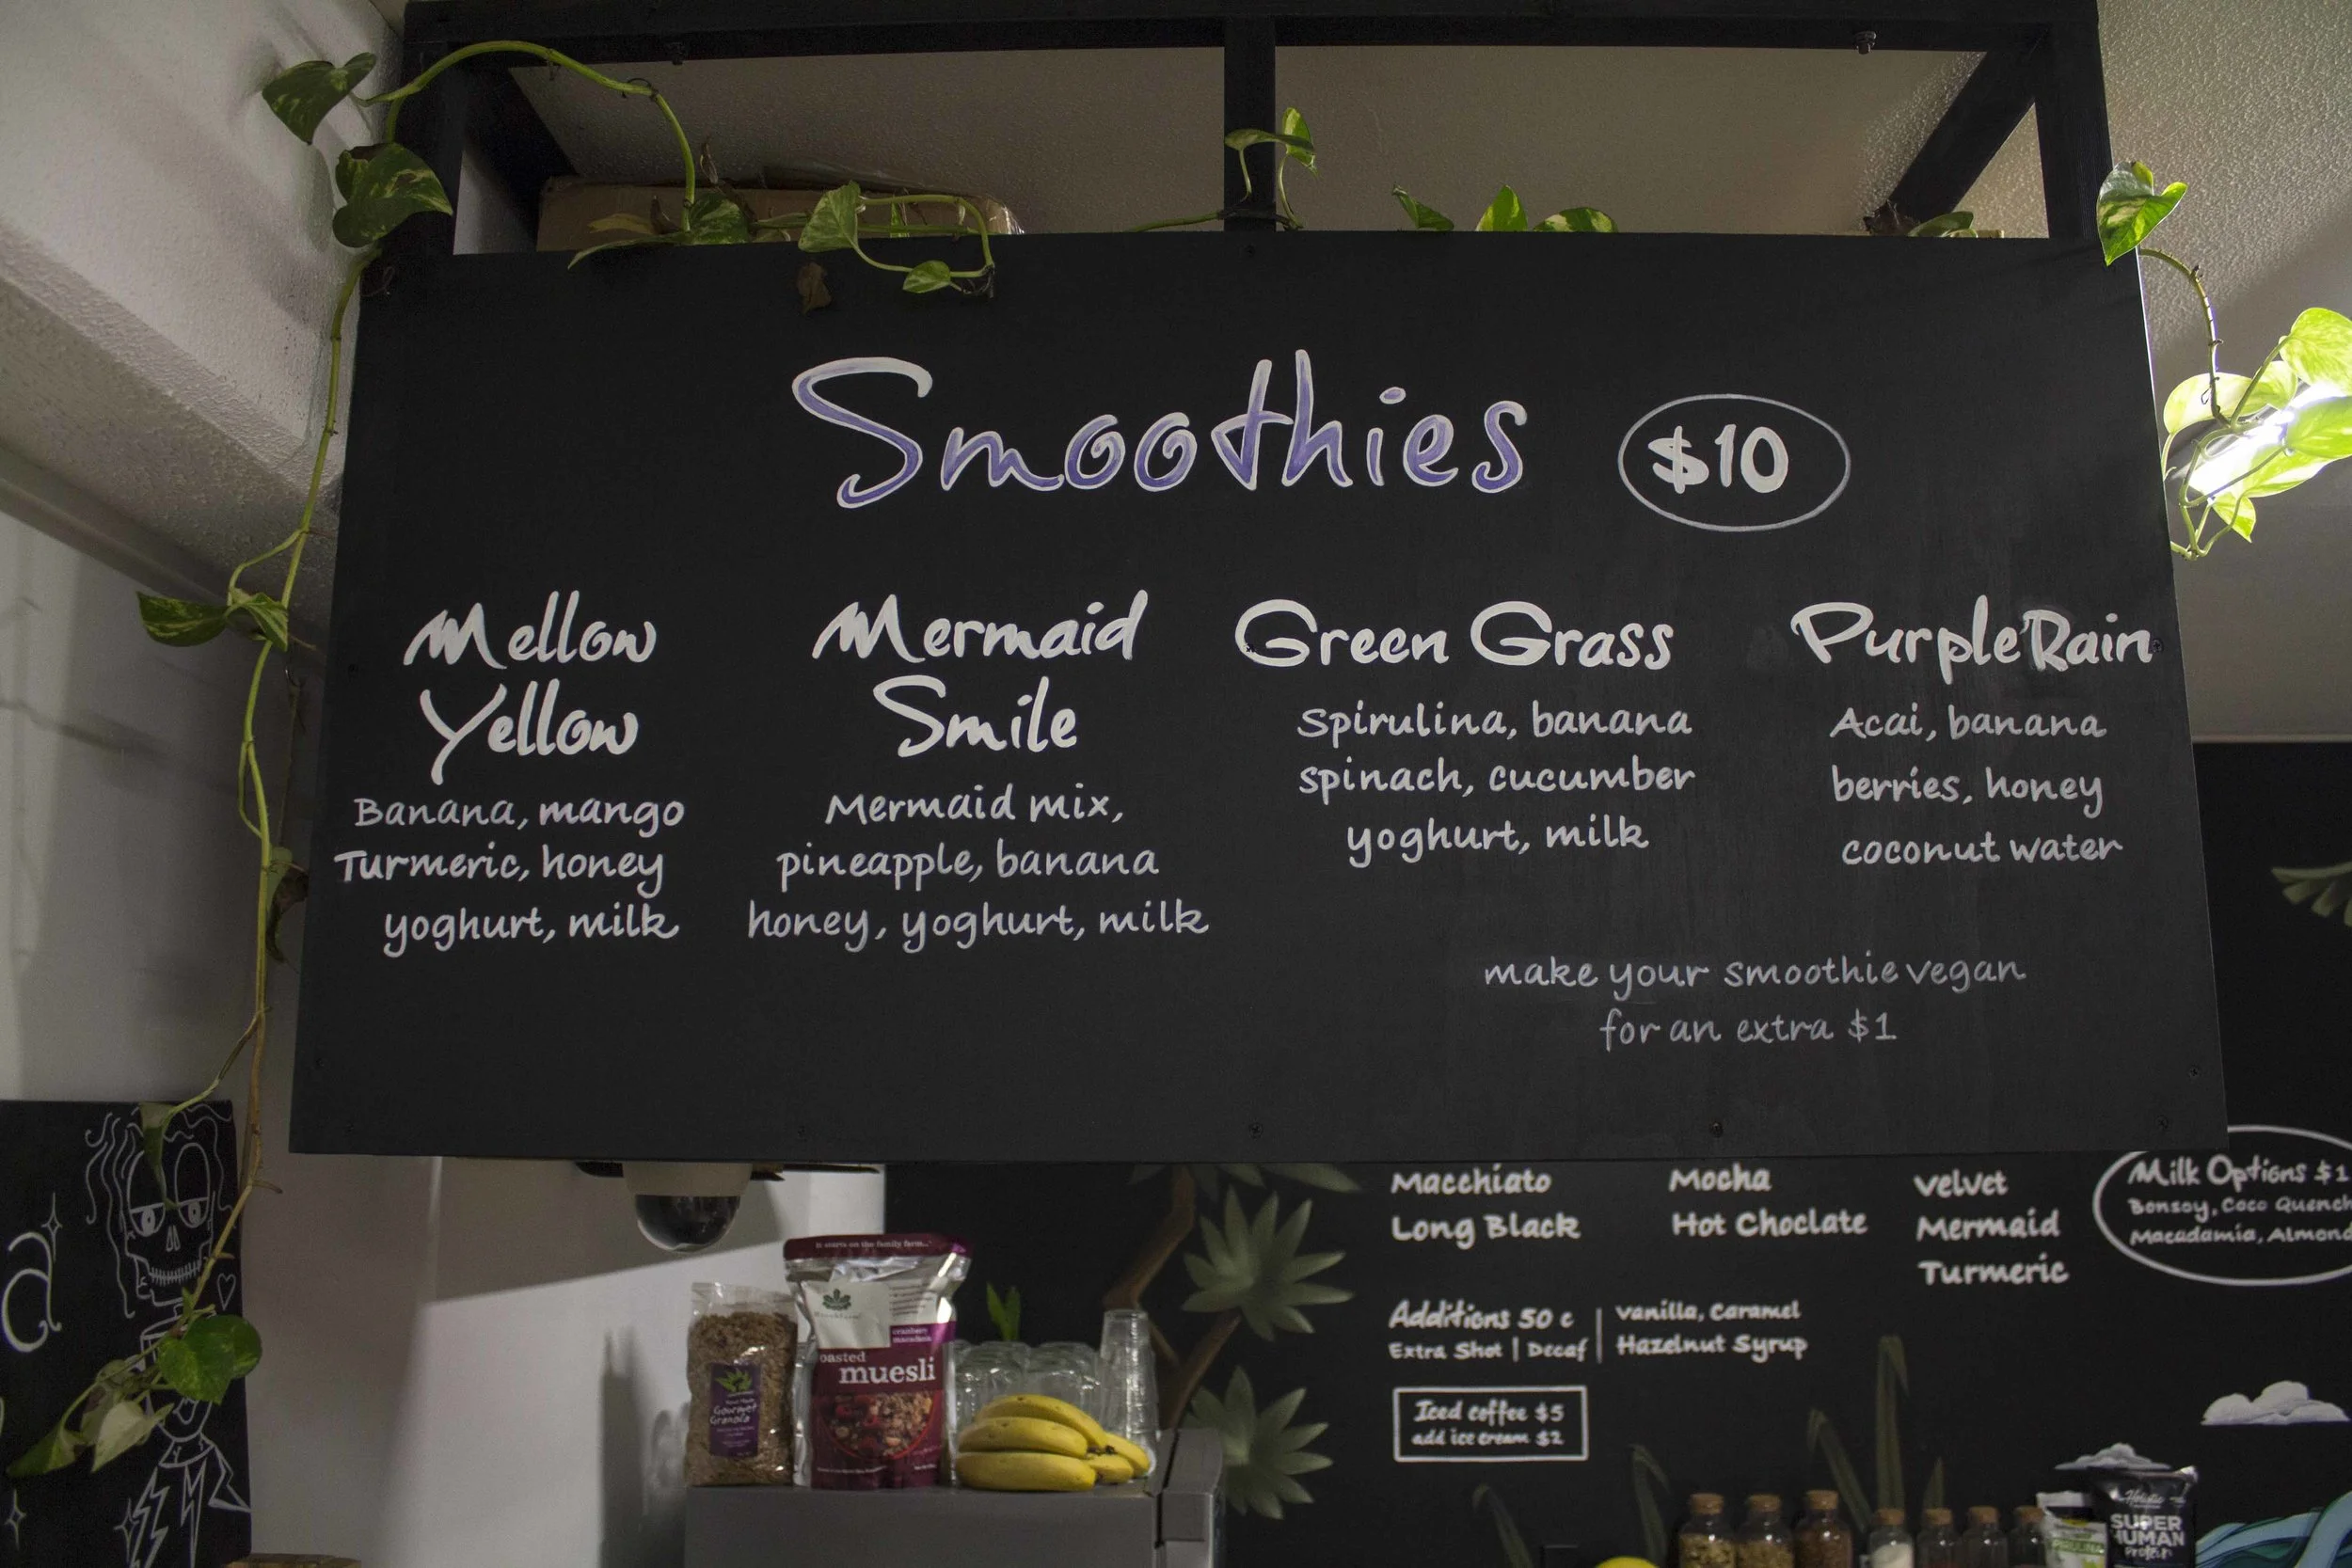 Smoothies $10
Mellow
Yellow
Banana, mango
Turmeric, honey
yoghurt, milk
Mermaid
Smile
Mermaid mix,
pineapple, banana
honey, yoghurt, milk
Green Grass
Spirulina, banana
spinach, cucumber
yoghurt, milk
Purple Rain
Acai, banana
berries, honey
coconut water
make your smoothie vegan
for an extra $1
Macchiato
Long Black
Mocha
Hot Choclate
Velvet
Mermaid
Turmeric
Milk Options $1
Bonsoy, Coco Quench
Macadamia, Almond
Additions 50 c
Extra Shot | Decaf
Vanilla, Caramel
Hazelnut Syrup
Iced coffee $5
add ice cream $2
a
It starts on the family farm...
cranberry
macadamia
oasted
muesli
Gourmet
Granola
Holistic
SUPER
HUMAN
Protein